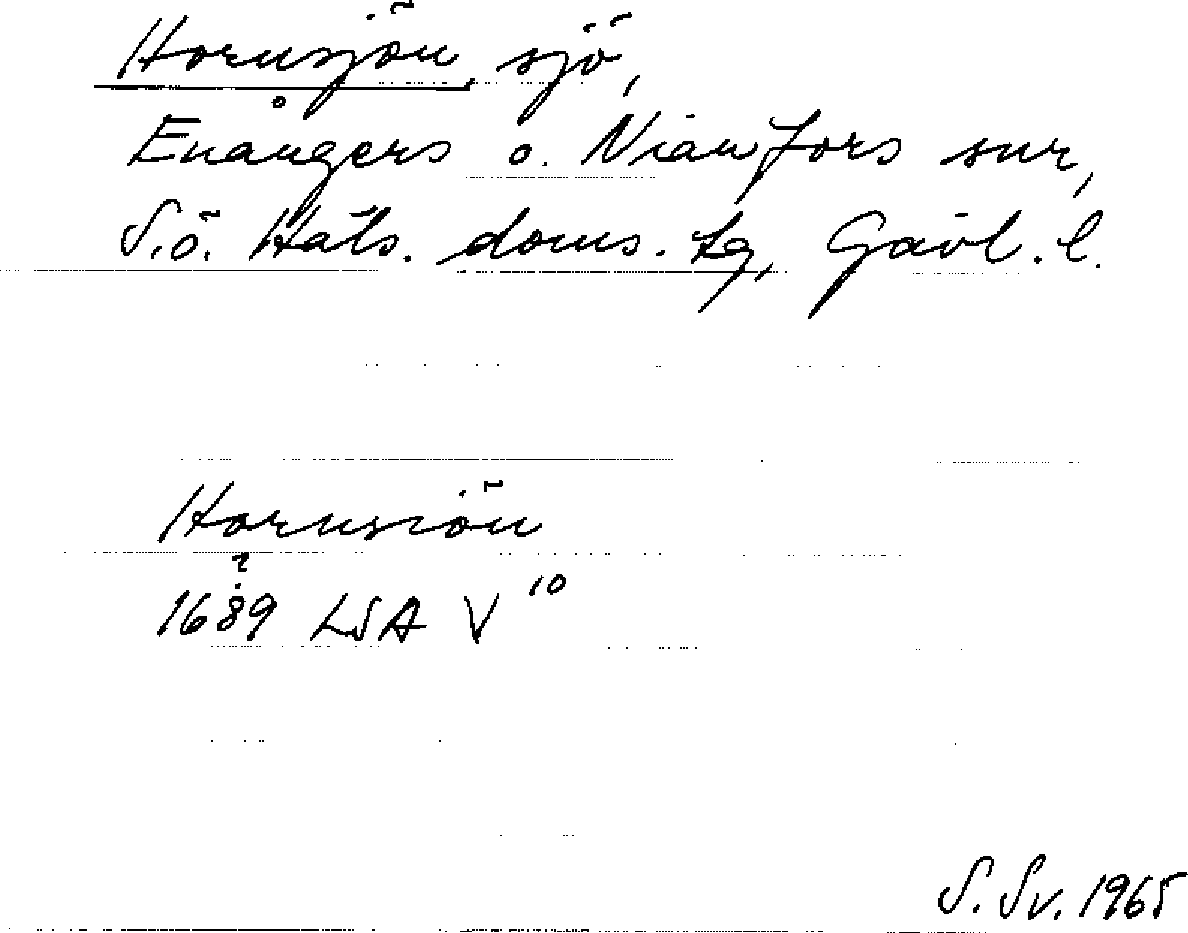 Hornsjön, sjö,
Enångers o. Nianfors snr,
S.ö. Häls. doms. tg, Gävl. l.
Hornsiön
?
1689 LSA V 10
S. Sv. 1965